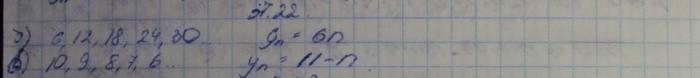 37.22
б) 6, 12, 18, 24, 30... yn = 6n
в) 10, 9, 8, 7, 6... yn = 11 - n